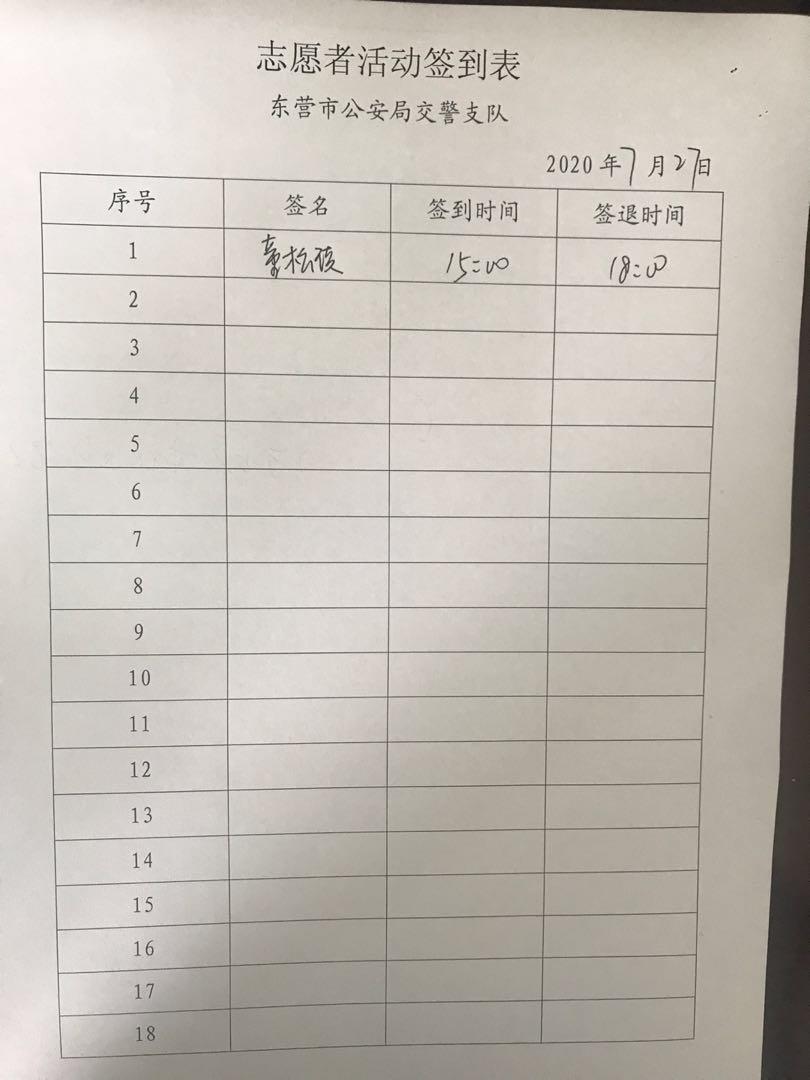 志愿者活动签到表
东营市公安局交警支队
2020年7月27日
序号 签名 签到时间 签退时间
1 15:00 18:00
2
3
4
5
6
7
8
9
10
11
12
13
14
15
16
17
18